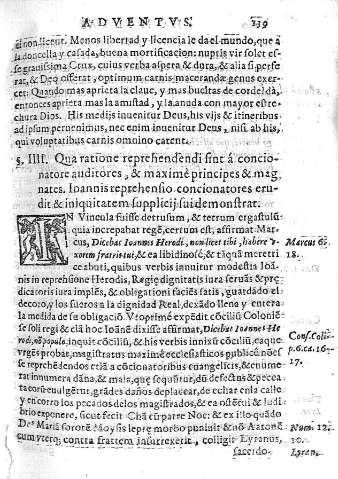 ADVENTVS. 239
ei non licent. Menos libertad y licencia le da el mundo, que á
la doncella y casada, buena mortificacion: nuptis vir solet es-
se grauissima Crux, cuius verba aspera & dura, & alia si perfe
rat, & Deo offerat, optimum carnis macerandæ genus exer-
cet: Quando mas aprieta la clauе, y mas bueltas de cordel dà,
entonces aprieta mas la amistad, y la anuda con mayor estre-
chura Dios. His medijs inuenitur Deus, his vijs & itineribus
ad ipsum peruenimus, nec enim inuenitur Deus, nisi ab his,
qui voluptatibus carnis omnino carent.
§. IIII. Qua ratione reprehendēdi sint á concio-
natore auditores, & maximè principes & mag
nates. Ioannis reprehensio concionatores eru-
dit & iniquitatem supplicij sui demonstrat.
IN Vincula fuisse detrusum, & tetrum ergastulū
quia increpabat regē, certum est, affirmat Mar-
cus, Dicebat Ioannes Herodi, non licet tibi, habere v-
xorem fratris tui, & ea libidinosè, & tāquā meretri
ce abuti, quibus verbis innuitur modestia Ioā-
nis in reprehensione Herodis, Regię dignitatis iura seruās & prę
dicatoris iura implēs, & obligationi faciēs satis, guardādo el
decoro, y los fueros a la dignidad Real, dexādo llena y entera
la medida de su obligaciō. Vt optimè expēdit cōciliū Coloniē-
se soli regi & clā hoc Ioānē dixisse affirmat, Dicebat Ioannes He-
rodi, nō populo, inquit cōciliū, & his verbis innixū cōciliū, eaque
vrgēs probat, magistratus maximè ecclesiasticos publicè non es
se reprehēdendos etiā a cōcionatoribus euangelicis, & enume-
rat innumera dāna, & mala, que sequūtur, dū defectus & pecca-
ta eorū euulgētur, grādes daños de placear, de echar en la calle
y en corro los pecados de los magistrados, & ea ostētui & ludi-
brio exponere, sicut fecit Chā cū patre Noe: & ex illo quòd
Deᵘˢ Mariā sororē Moysis leprę morbo puniuit & nō Aaronē
cum vterq; contra fratrem insurrexerit, colligit Lyranus,
sacerdo-
Marcus 6.
18.
Conf. Colōi.
p. 6. ca. 16.
17.
Num. 12.
10.
Lyran.